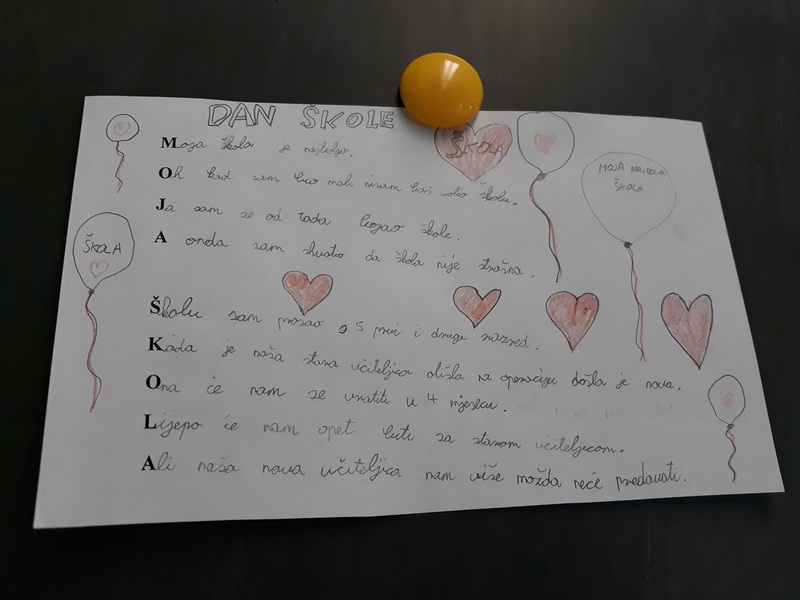 DAN ŠKOLE
ŠKOLA
MOJA NAJBOLJA
ŠKOLA
ŠKOLA
Moja škola je najbolja.
Oh kad sam bio mali nisam baš volio školu.
Ja sam se od tada bojao škole.
A onda sam shvatio da škola nije strašna.
Školu sam prošao s 5 prvi i drugi razred.
Kada je naša stara učiteljica otišla na operaciju došla je nova.
Ona će nam se vratiti u 4 mjesecu.
Lijepo će nam opet biti sa starom učiteljicom.
Ali naša nova učiteljica nam više možda neće predavati.